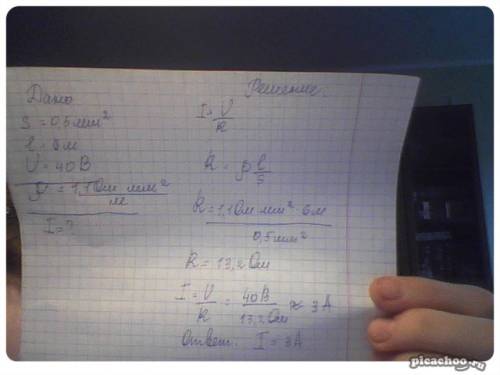 Дано
S = 0,5 мм²
l = 6м
U = 40В
ρ = 1,1 Ом мм²/м
I = ?
Решение.
I = U/R
R = ρ l/S
R = 1,1 Ом мм² · 6м / 0,5мм²
R = 13,2 Ом
I = U/R = 40В/13,2 Ом ≈ 3А
Ответ: I = 3А
picachoo.ru